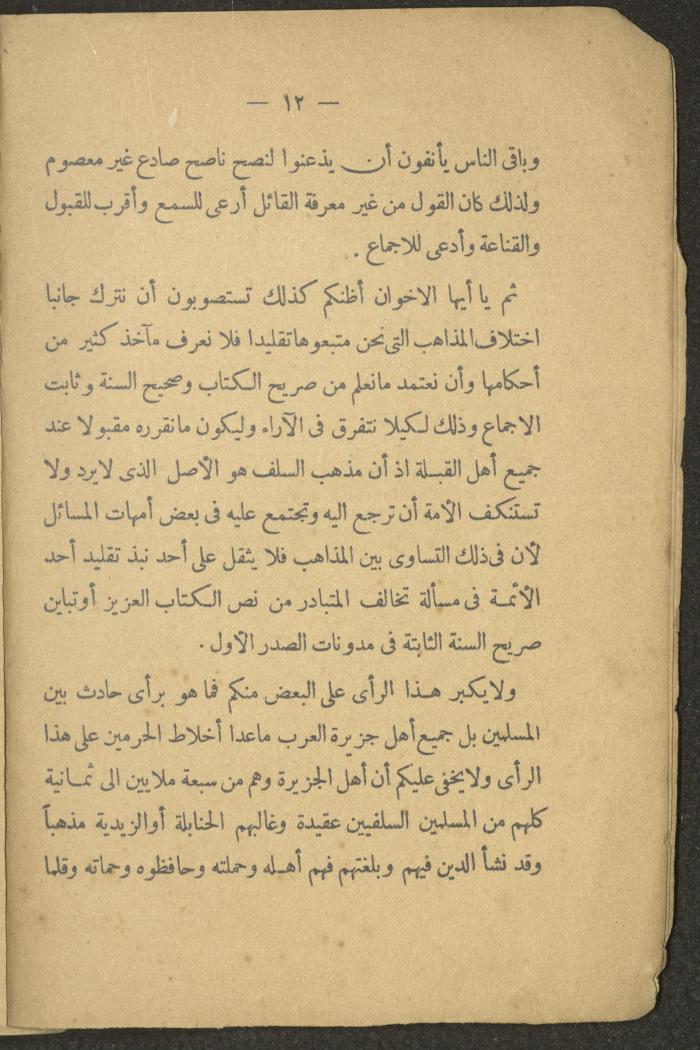 — ١٢ —
وباقى الناس يأنفون أن يذعنوا لنصح ناصح صادع غير معصوم
ولذلك كان القول من غير معرفة القائل أرعى للسمع وأقرب للقبول
والقناعة وأدعى للاجماع .
ثم يا أيها الاخوان أظنكم كذلك تستصوبون أن نترك جانبا
اختلاف المذاهب التى نحن متبعوها تقليدا فلا نعرف مآخذ كثير من
أحكامها وأن نعتمد مانعلم من صريح الكتاب وصحيح السنة وثابت
الاجماع وذلك لكيلا نتفرق فى الآراء وليكون مانقرره مقبولا عند
جميع أهل القبلة اذ أن مذهب السلف هو الأصل الذى لايرد ولا
تستنكف الأمة أن ترجع اليه وتجتمع عليه فى بعض أمهات المسائل
لأن فى ذلك التساوى بين المذاهب فلا يثقل على أحد نبذ تقليد أحد
الأئمة فى مسألة تخالف المتبادر من نص الكتاب العزيز أوتباين
صريح السنة الثابتة فى مدونات الصدر الأول .
ولايكبر هذا الرأى على البعض منكم فما هو برأى حادث بين
المسلمين بل جميع أهل جزيرة العرب ماعدا أخلاط الحرمين على هذا
الرأى ولايخفى عليكم أن أهل الجزيرة وهم من سبعة ملايين الى ثمانية
كلهم من المسلمين السلفيين عقيدة وغالبهم الحنابلة أوالزيدية مذهباً
وقد نشأ الدين فيهم وبلغتهم فهم أهله وحملته وحافظوه وحماته وقلما